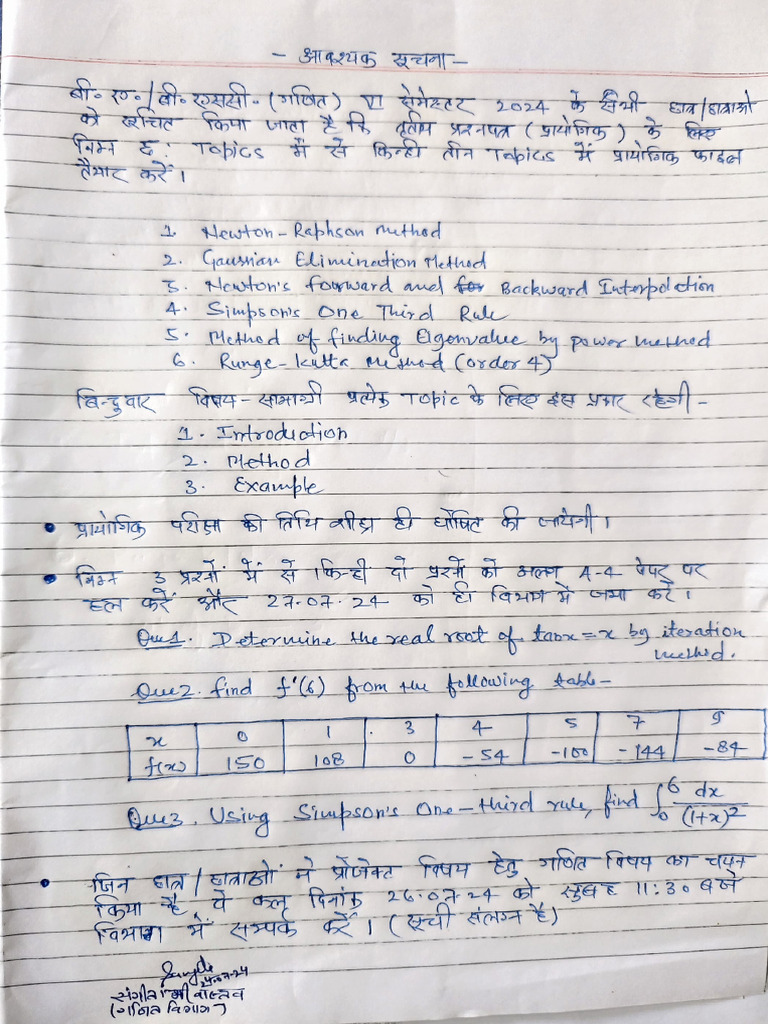 - आवश्यक सूचना -
बी॰ए॰/बी॰एससी॰(गणित) VI सेमेस्टर 2024 के सभी छात्र/छात्राओं
को सूचित किया जाता है कि तृतीय प्रश्नपत्र (प्रायोगिक) के लिए
निम्न छः Topics में से किन्ही तीन Topics में प्रायोगिक फाइल
तैयार करें।
1. Newton-Raphson method
2. Gaussian Elimination Method
3. Newton's forward and Backward Interpolation
4. Simpson's One Third Rule
5. Method of finding Eigenvalue by power method
6. Runge-Kutta Method (order 4)
बिन्दुवार विषय-सामाग्री प्रत्येक Topic के लिए इस प्रकार रहेगी -
1. Introduction
2. Method
3. Example
• प्रायोगिक परीक्षा की तिथि शीघ्र ही घोषित की जायेगी।
• निम्न 3 प्रश्नों में से किन्ही दो प्रश्नों को अलग A-4 पेपर पर
हल करें और 27.07.24 को ही विभाग में जमा करें।
Que1. Determine the real root of tanx = x by iteration
method.
Que2. find f'(6) from the following table-
x 0 1 3 4 5 7 9
f(x) 150 108 0 -54 -100 -144 -84
Que3. Using Simpson's One-third rule, find ∫₀⁶ dx/(1+x)²
• जिन छात्र/छात्राओं ने प्रोजेक्ट विषय हेतु गणित विषय का चयन
किया है, वे कल दिनांक 26.07.24 को सुबह 11:30 बजे
विभाग में सम्पर्क करें। (सूची संलग्न है)
24-07-24
संगीता श्रीवास्तव
(गणित विभाग)